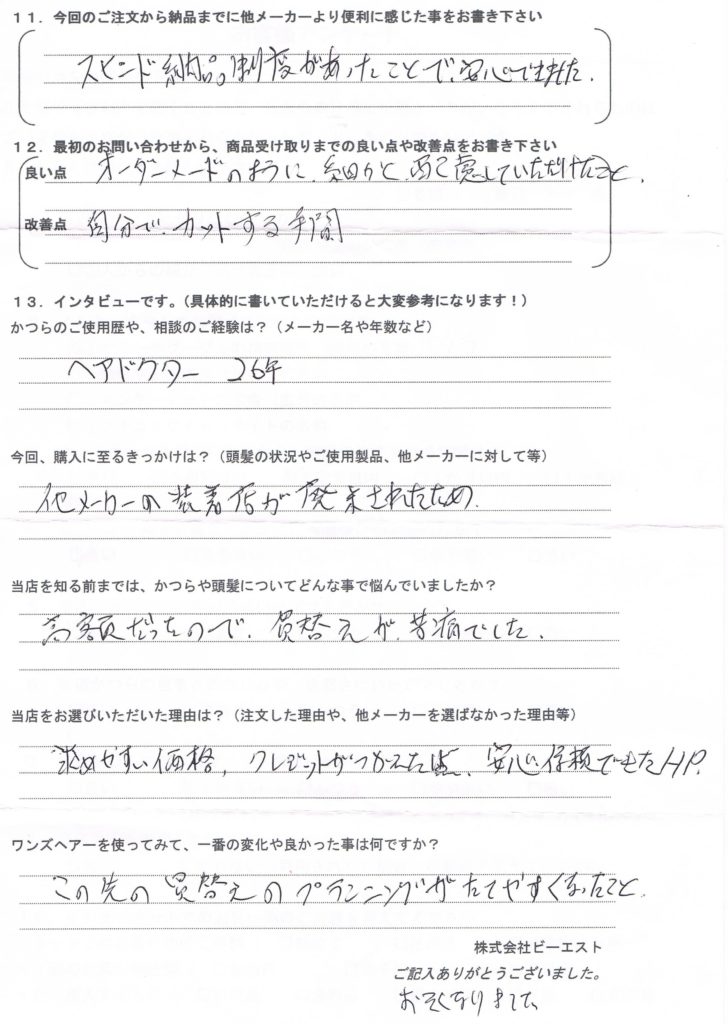 11．今回のご注文から納品までに他メーカーより便利に感じた事をお書き下さい
スピード納品制度があったことで、安心できました．
12．最初のお問い合わせから、商品受け取りまでの良い点や改善点をお書き下さい
良い点 オーダーメードのように、細かく配慮していただけたこと．
改善点 自分で、カットする手間
13．インタビューです。（具体的に書いていただけると大変参考になります！）
かつらのご使用歴や、相談のご経験は？（メーカー名や年数など）
ヘアドクター 26年
今回、購入に至るきっかけは？（頭髪の状況やご使用製品、他メーカーに対して等）
他メーカーの装着店が廃業されたため．
当店を知る前までは、かつらや頭髪についてどんな事で悩んでいましたか？
高額だったので、買替えが、苦痛でした．
当店をお選びいただいた理由は？（注文した理由や、他メーカーを選ばなかった理由等）
求めやすい価格，クレジットがつかえた点、安心信頼できたHP．
ワンズヘアーを使ってみて、一番の変化や良かった事は何ですか？
この先の買替えのプランニングがたてやすくなったこと．
株式会社ビーエスト
ご記入ありがとうございました。
おそくなりました